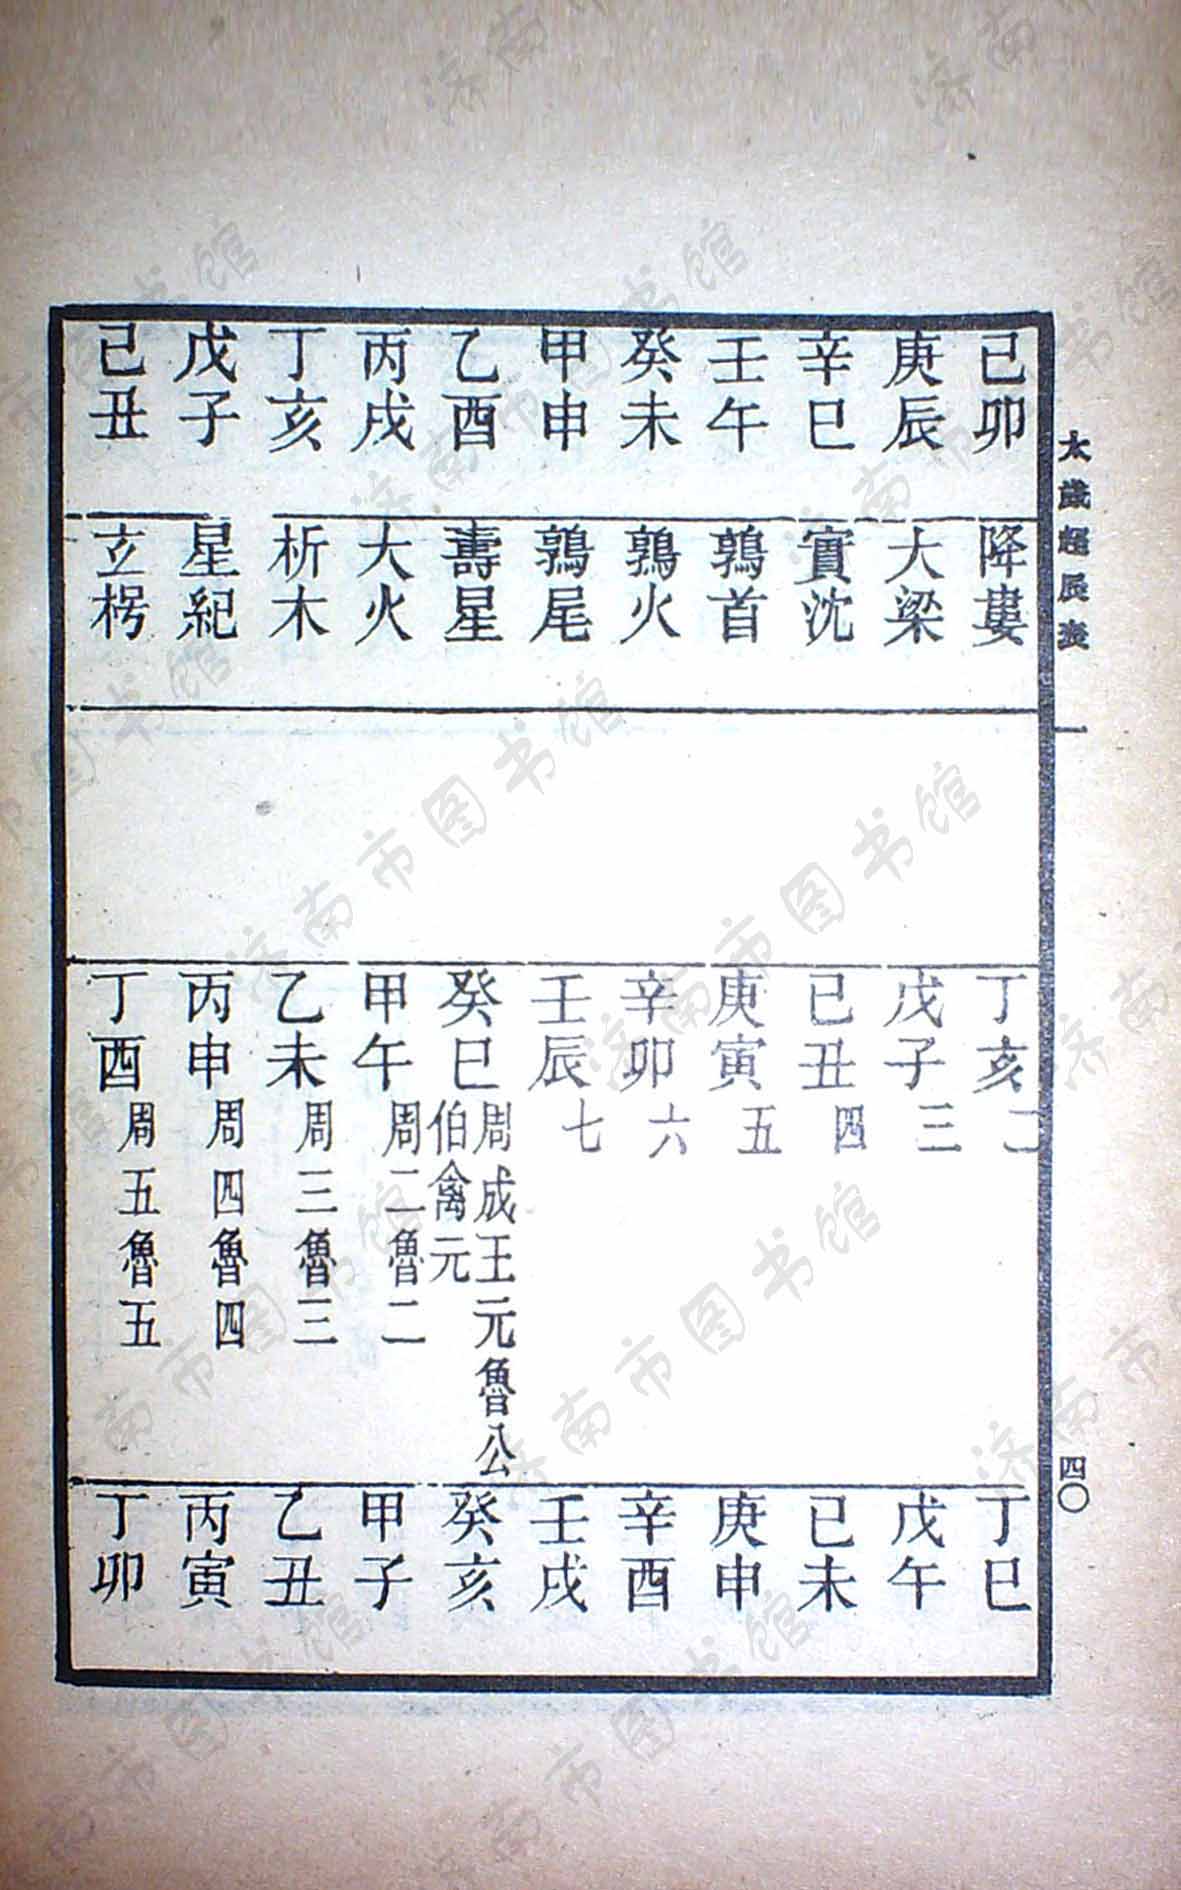 太歲超辰表 一 四〇
己卯 降婁 丁亥 二 丁巳
庚辰 大梁 戊子 三 戊午
辛巳 實沈 己丑 四 己未
壬午 鶉首 庚寅 五 庚申
癸未 鶉火 辛卯 六 辛酉
甲申 鶉尾 壬辰 七 壬戌
乙酉 壽星 癸巳 周成王元魯公伯禽元 癸亥
丙戌 大火 甲午 周二魯二 甲子
丁亥 析木 乙未 周三魯三 乙丑
戊子 星紀 丙申 周四魯四 丙寅
己丑 玄枵 丁酉 周五魯五 丁卯
济南市图书馆